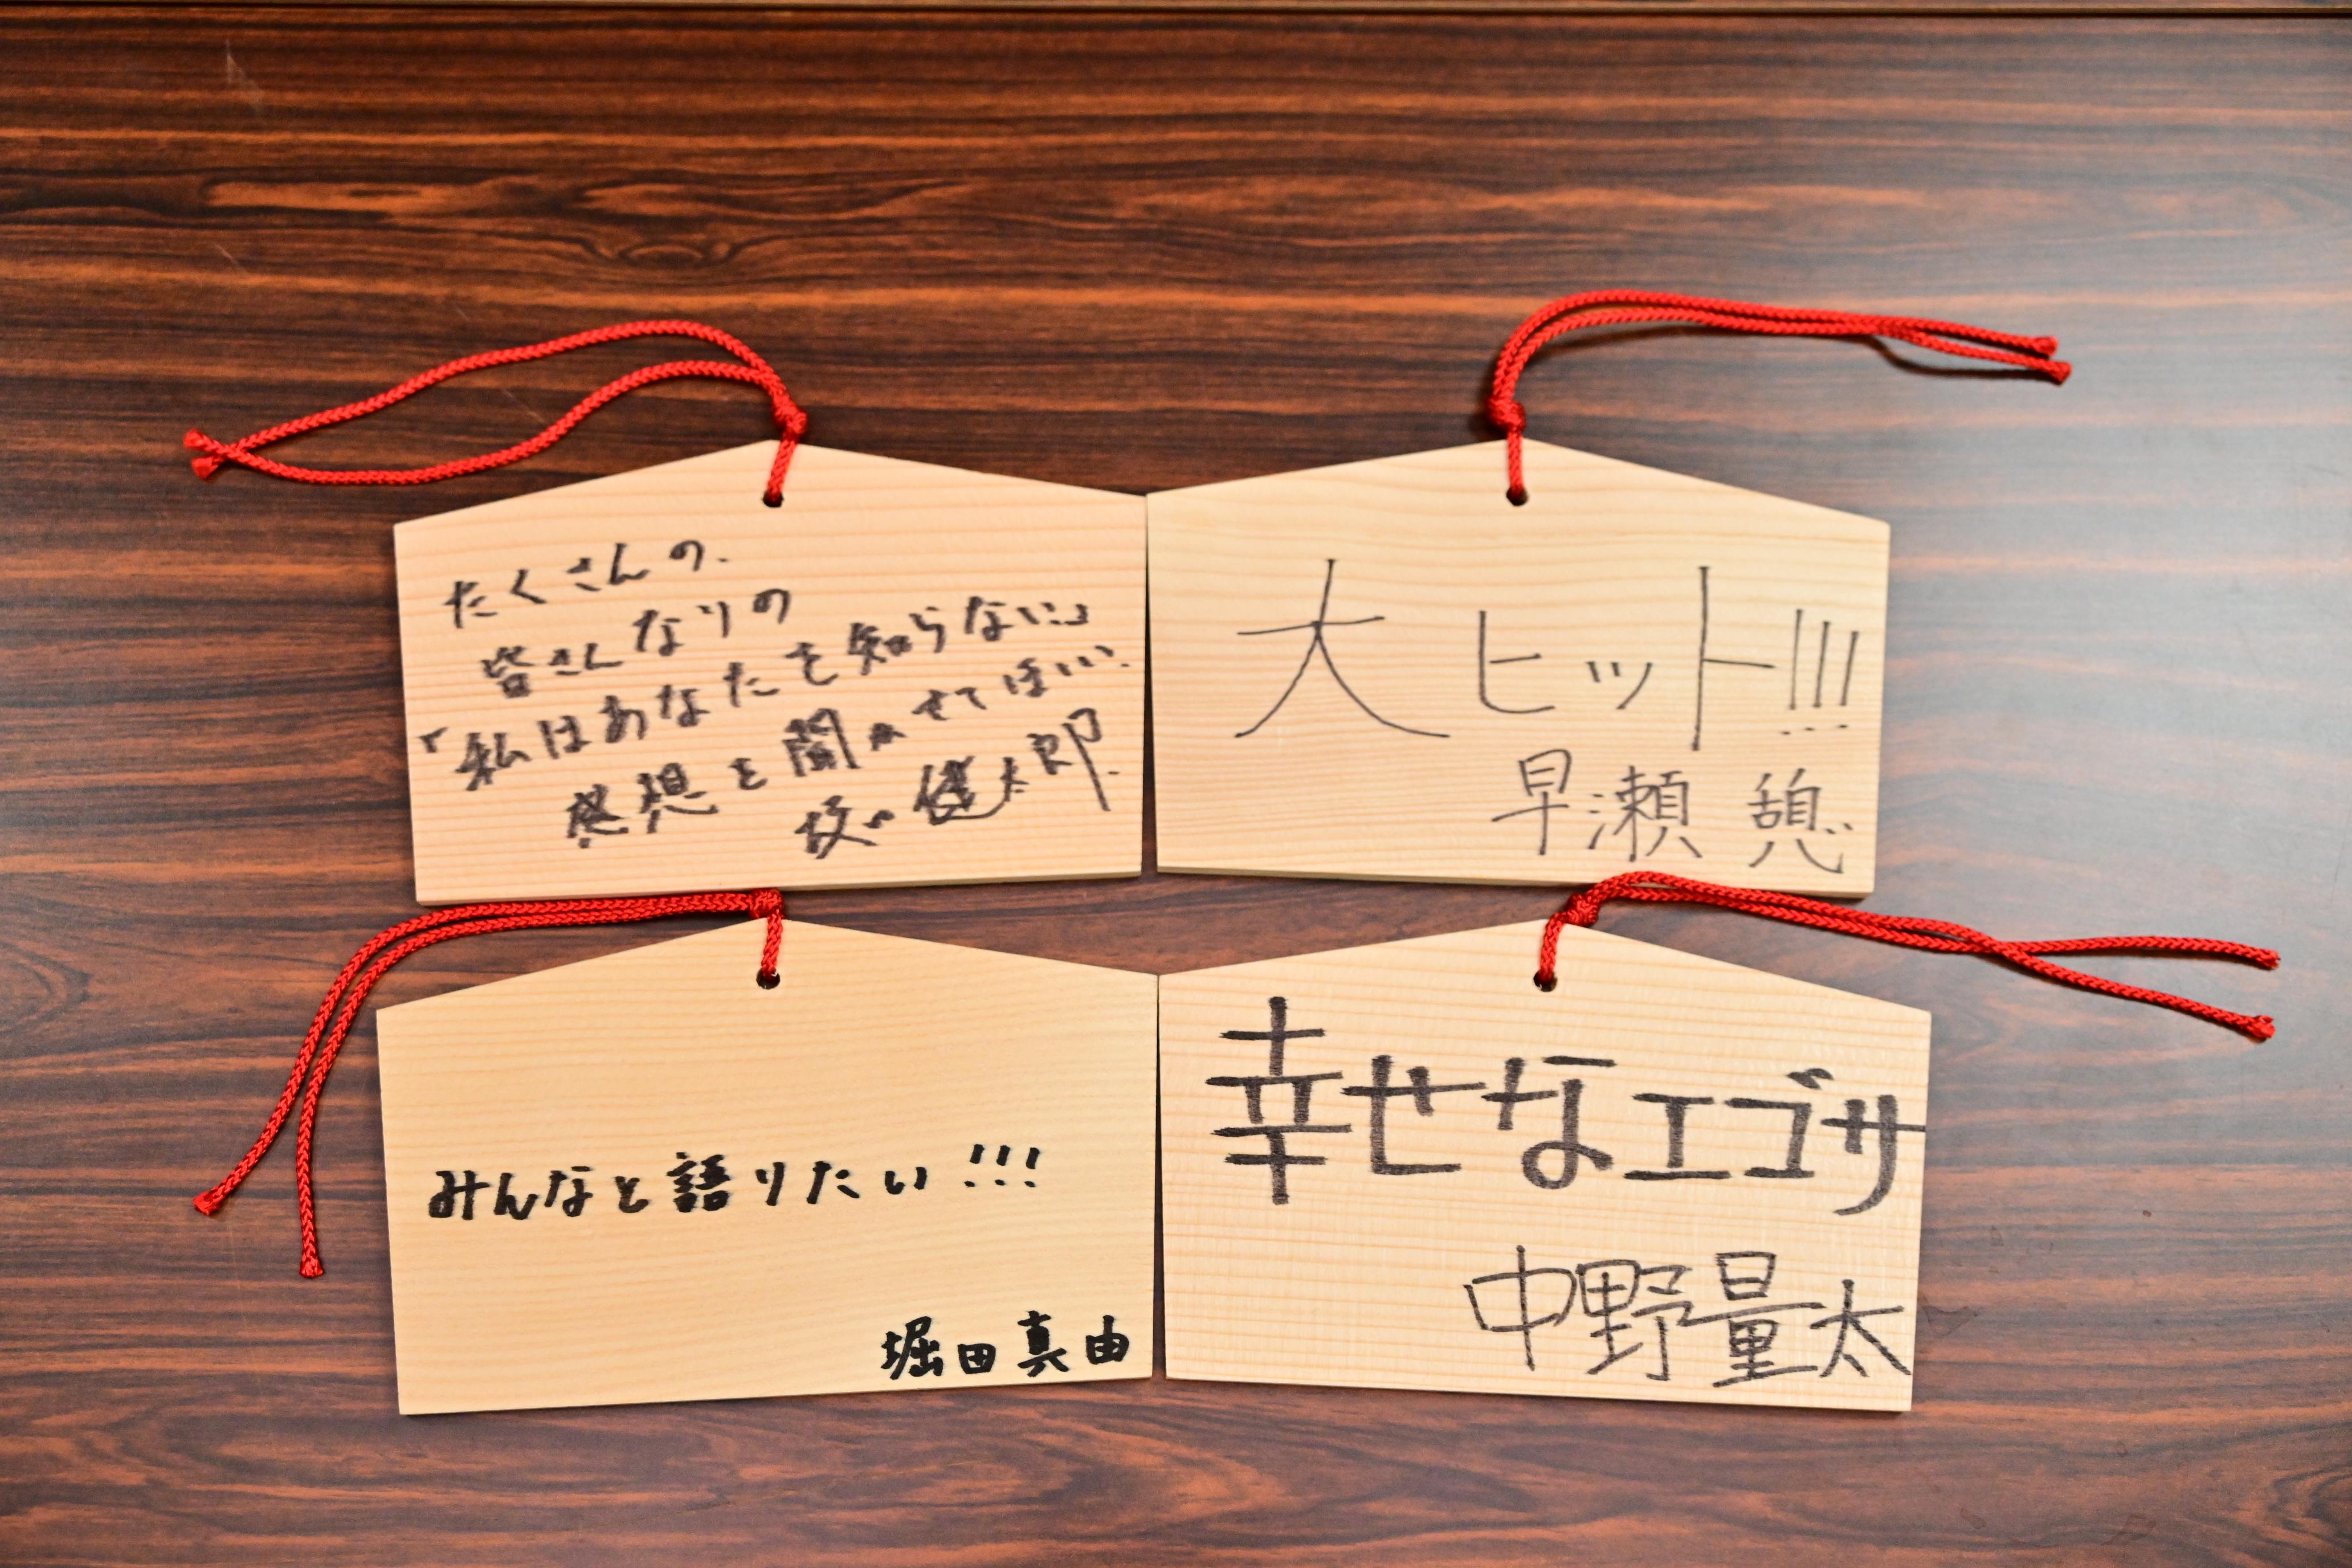 たくさんの、
皆さんなりの
「私はあなたを知らない、」
感想を聞かせてほしい。
坂井健太郎
大ヒット!!!
早瀬 憩
みんなと語りたい!!!
堀田真由
幸せなエゴサ
中野量太